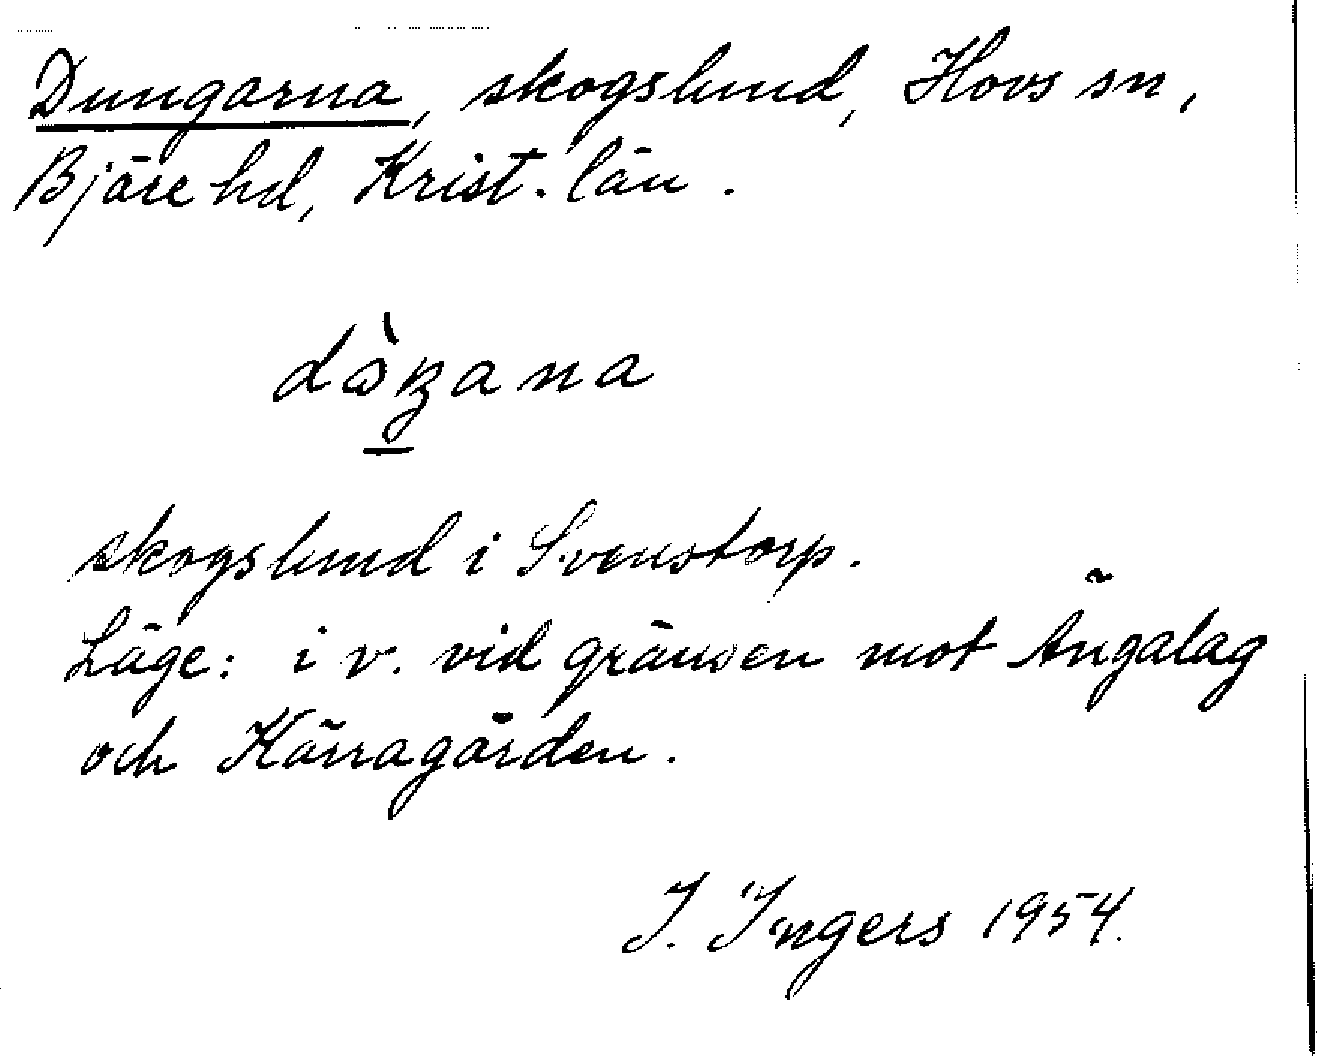 Dungarna, skogslund, Hovs sn,
Bjäre hd, Krist. län.
skogslund i Svenstorp.
Läge: i v. vid gränsen mot Ängalag
och Kärragården.
J. Ingers 1954.